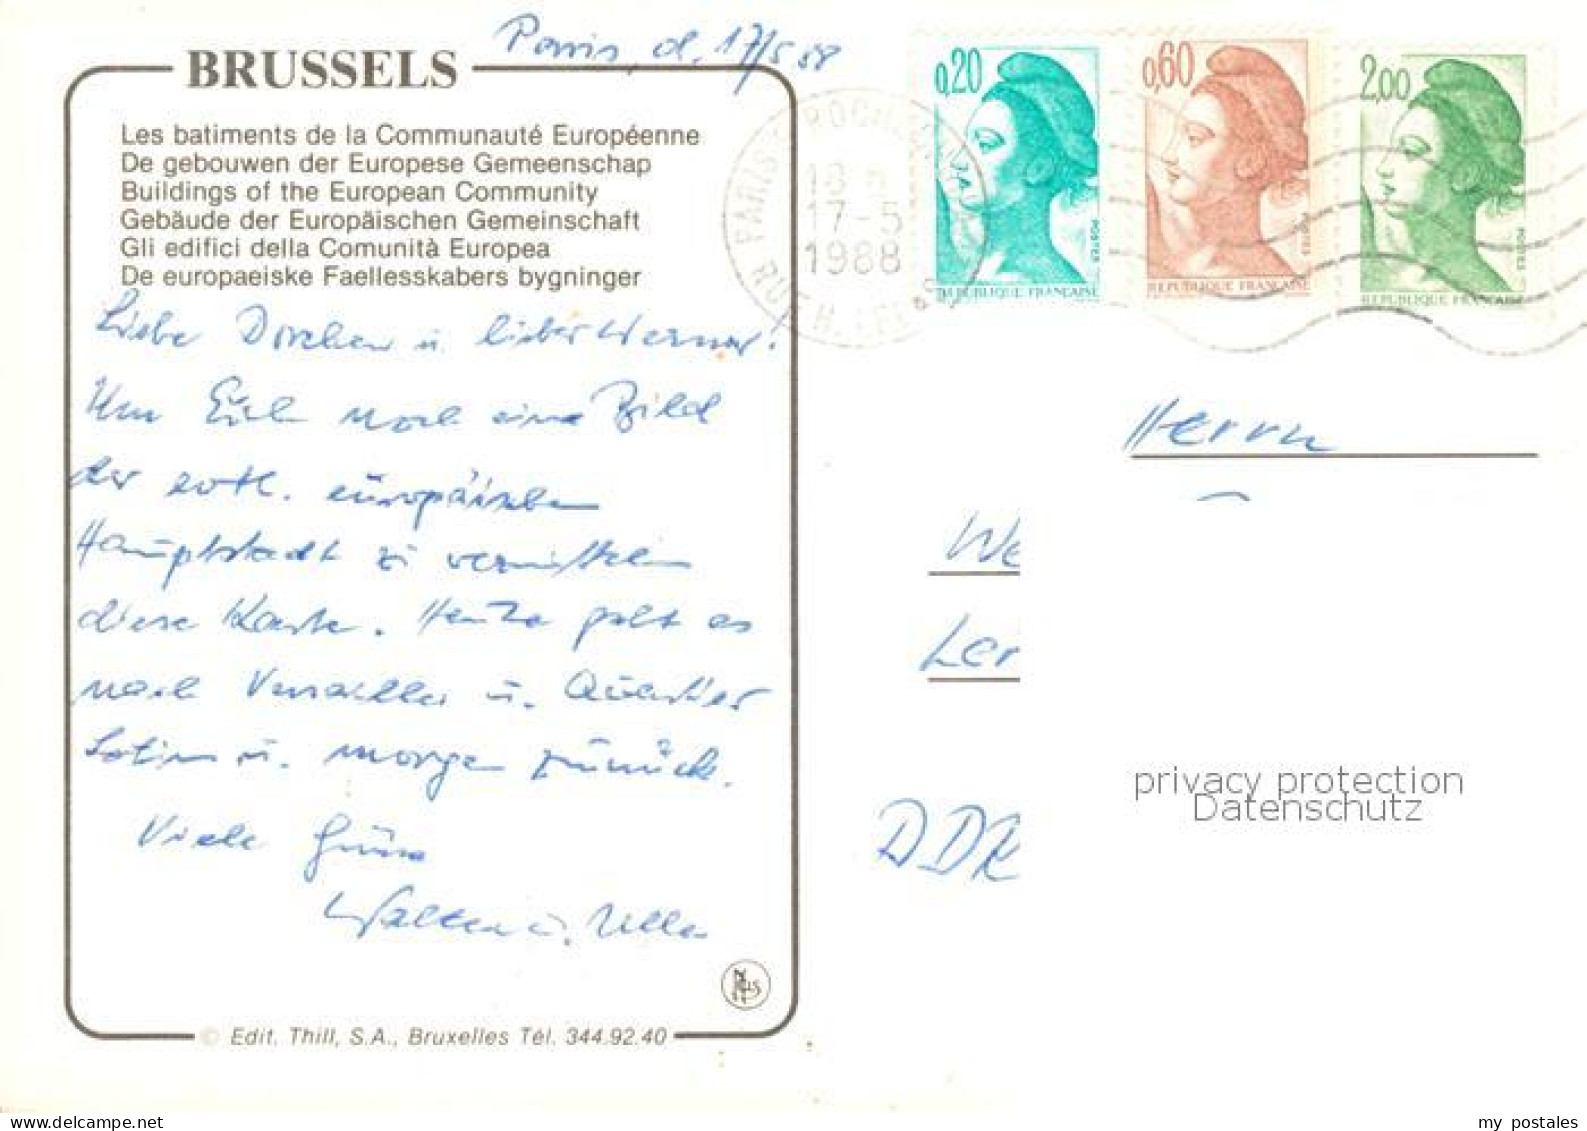 Paris, d. 17/5 88
BRUSSELS
Les batiments de la Communauté Européenne
De gebouwen der Europese Gemeenschap
Buildings of the European Community
Gebäude der Europäischen Gemeinschaft
Gli edifici della Comunità Europea
De europaeiske Faellesskabers bygninger
Liebe Dorchen u. lieber Werner!
Um Euch noch eine Bild
der europäischen
Hauptstadt zu vermitteln
diese Karte. Heute geht es
nach Versailles u. Quartier
Latin u. morgen zurück.
Viele Grüße
Walter u. Ulla
© Edit. Thill, S.A., Bruxelles Tél. 344.92.40
0,20
POSTES
REPUBLIQUE FRANÇAISE
0,60
POSTES
REPUBLIQUE FRANÇAISE
2,00
POSTES
REPUBLIQUE FRANÇAISE
PARIS
18 H
17-5
1988
Herrn
We
Ler
DDR
privacy protection
Datenschutz
my postales